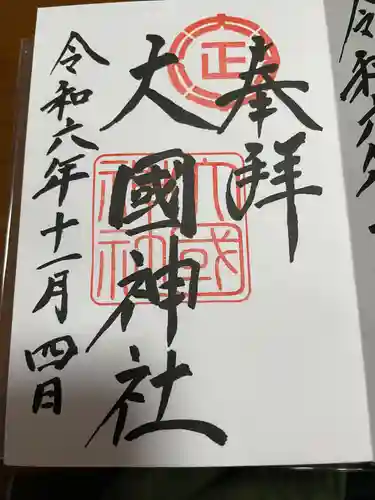 奉拝
正
大國神社
大國
神社
令和六年十一月四日
令和六年